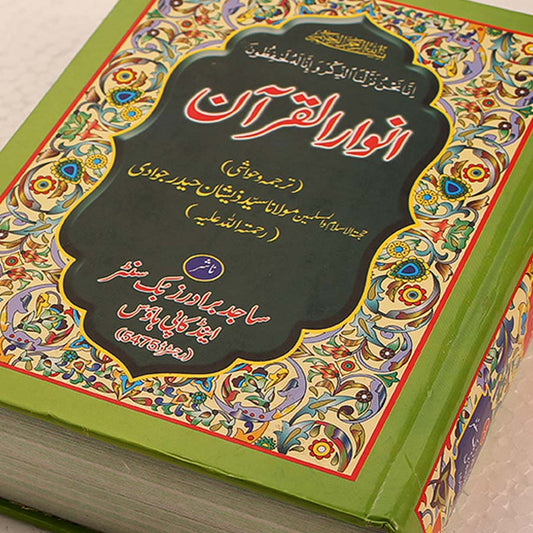 بسم الله الرحمن الرحیم
إنا نحن نزلنا الذكر و إنا له لحفظون
انوار القرآن
(ترجمہ و حواشی)
حجۃ الاسلام والمسلمین مولانا سید ذیشان حیدر جوادی
(رحمۃ اللہ علیہ)
ناشر
ساجد برادرز بک سنٹر
اینڈ کاپی ہاؤس
(رجسٹرڈ 5475)